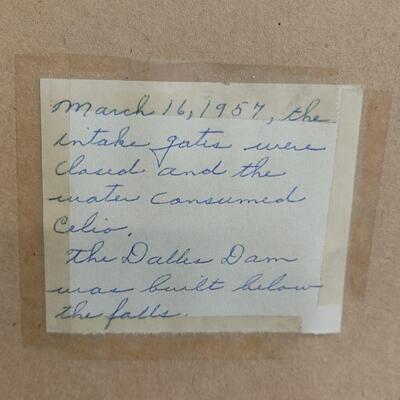 March 16, 1957, the
intake gates were
closed and the
water consumed
Celio.
The Dalles Dam
was built below
the falls.